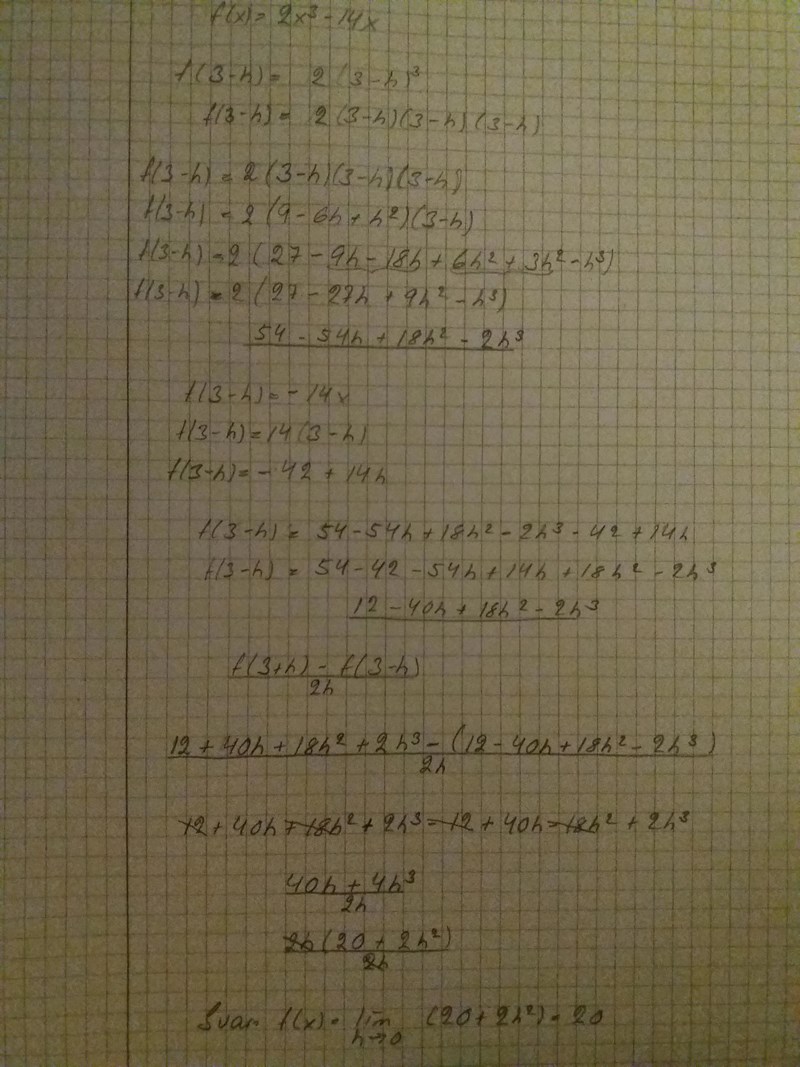 f(x) = 2x³ - 14x
f(3-h) = 2(3-h)³
f(3-h) = 2(3-h)(3-h)(3-h)
f(3-h) = 2(3-h)(3-h)(3-h)
f(3-h) = 2(9-6h+h²)(3-h)
f(3-h) = 2(27-9h-18h+6h²+3h²-h³)
f(3-h) = 2(27-27h+9h²-h³)
54-54h+18h²-2h³
f(3-h) = -14x
f(3-h) = 14(3-h)
f(3-h) = -42+14h
f(3-h) = 54-54h+18h²-2h³-42+14h
f(3-h) = 54-42-54h+14h+18h²-2h³
12-40h+18h²-2h³
f(3+h)-f(3-h)
2h
12+40h+18h²+2h³-(12-40h+18h²-2h³)
2h
12+40h+18h²+2h³-12+40h-18h²+2h³
40h+4h³
2h
2h(20+2h²)
2h
Svar: f(x) = lim (20+2h²) = 20
h→0